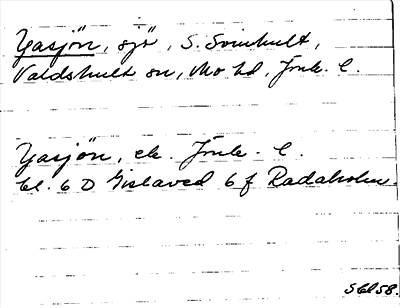 Yasjön, sjö, S. Svinhult,
Valdshult sn, Mo hd, Jönk. l.
Yasjön, ek. Jönk. l.
bl. 6 D Gislaved 6 f Radaholm.
5658.